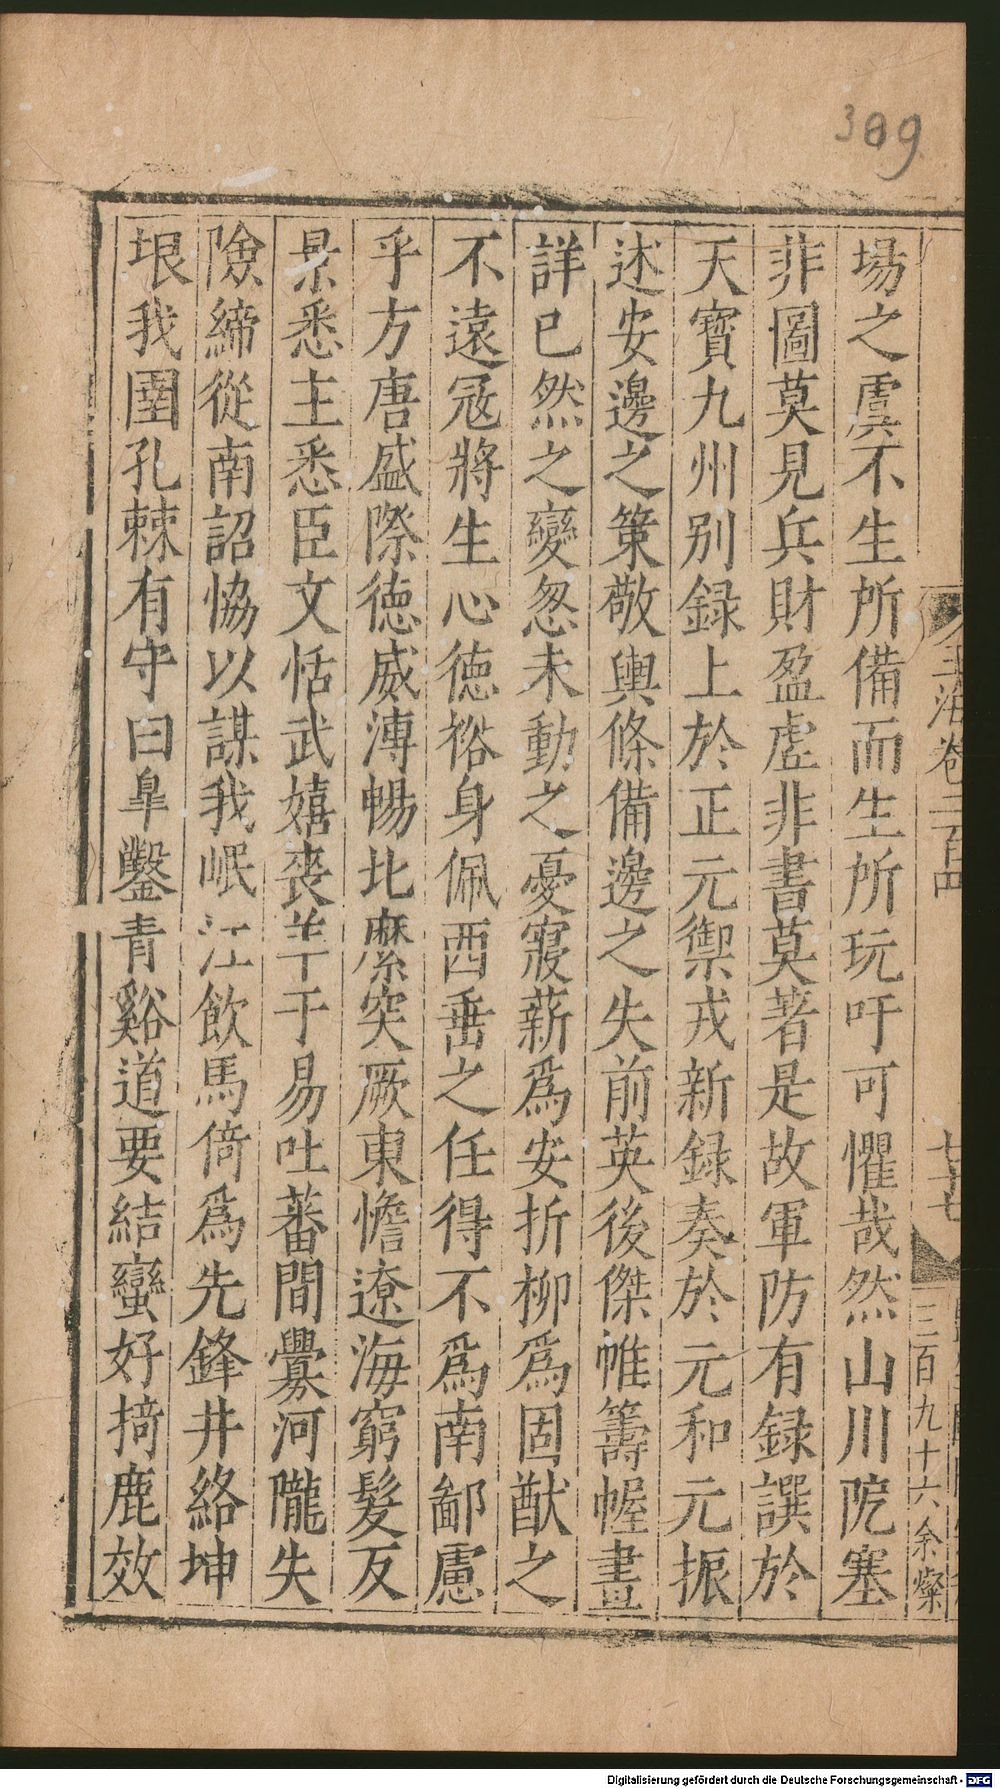 309
玉海卷二百四
七十七
三百九十六余燦
場之虞不生所備而生所玩吁可懼哉然山川阨塞
非圖莫見兵財盈虛非書莫著是故軍防有録譔於
天寳九州別録上於正元禦戎新録奏於元和元振
述安邊之策敬輿條備邊之失前英後傑帷籌幄畫
詳已然之變忽未動之憂寢薪爲安折柳爲固猷之
不遠冦將生心徳裕身佩西垂之任得不爲南鄙慮
乎方唐盛際徳威溥暢北縻突厥東憺遼海窮髮反
景悉主悉臣文恬武嬉喪羊于易吐蕃間釁河隴失
險締從南詔恊以謀我岷江飲馬倚爲先鋒井絡坤
垠我圉孔棘有守曰臯鑿青谿道要結蠻好掎鹿效
Digitalisierung gefördert durch die Deutsche Forschungsgemeinschaft - DFG